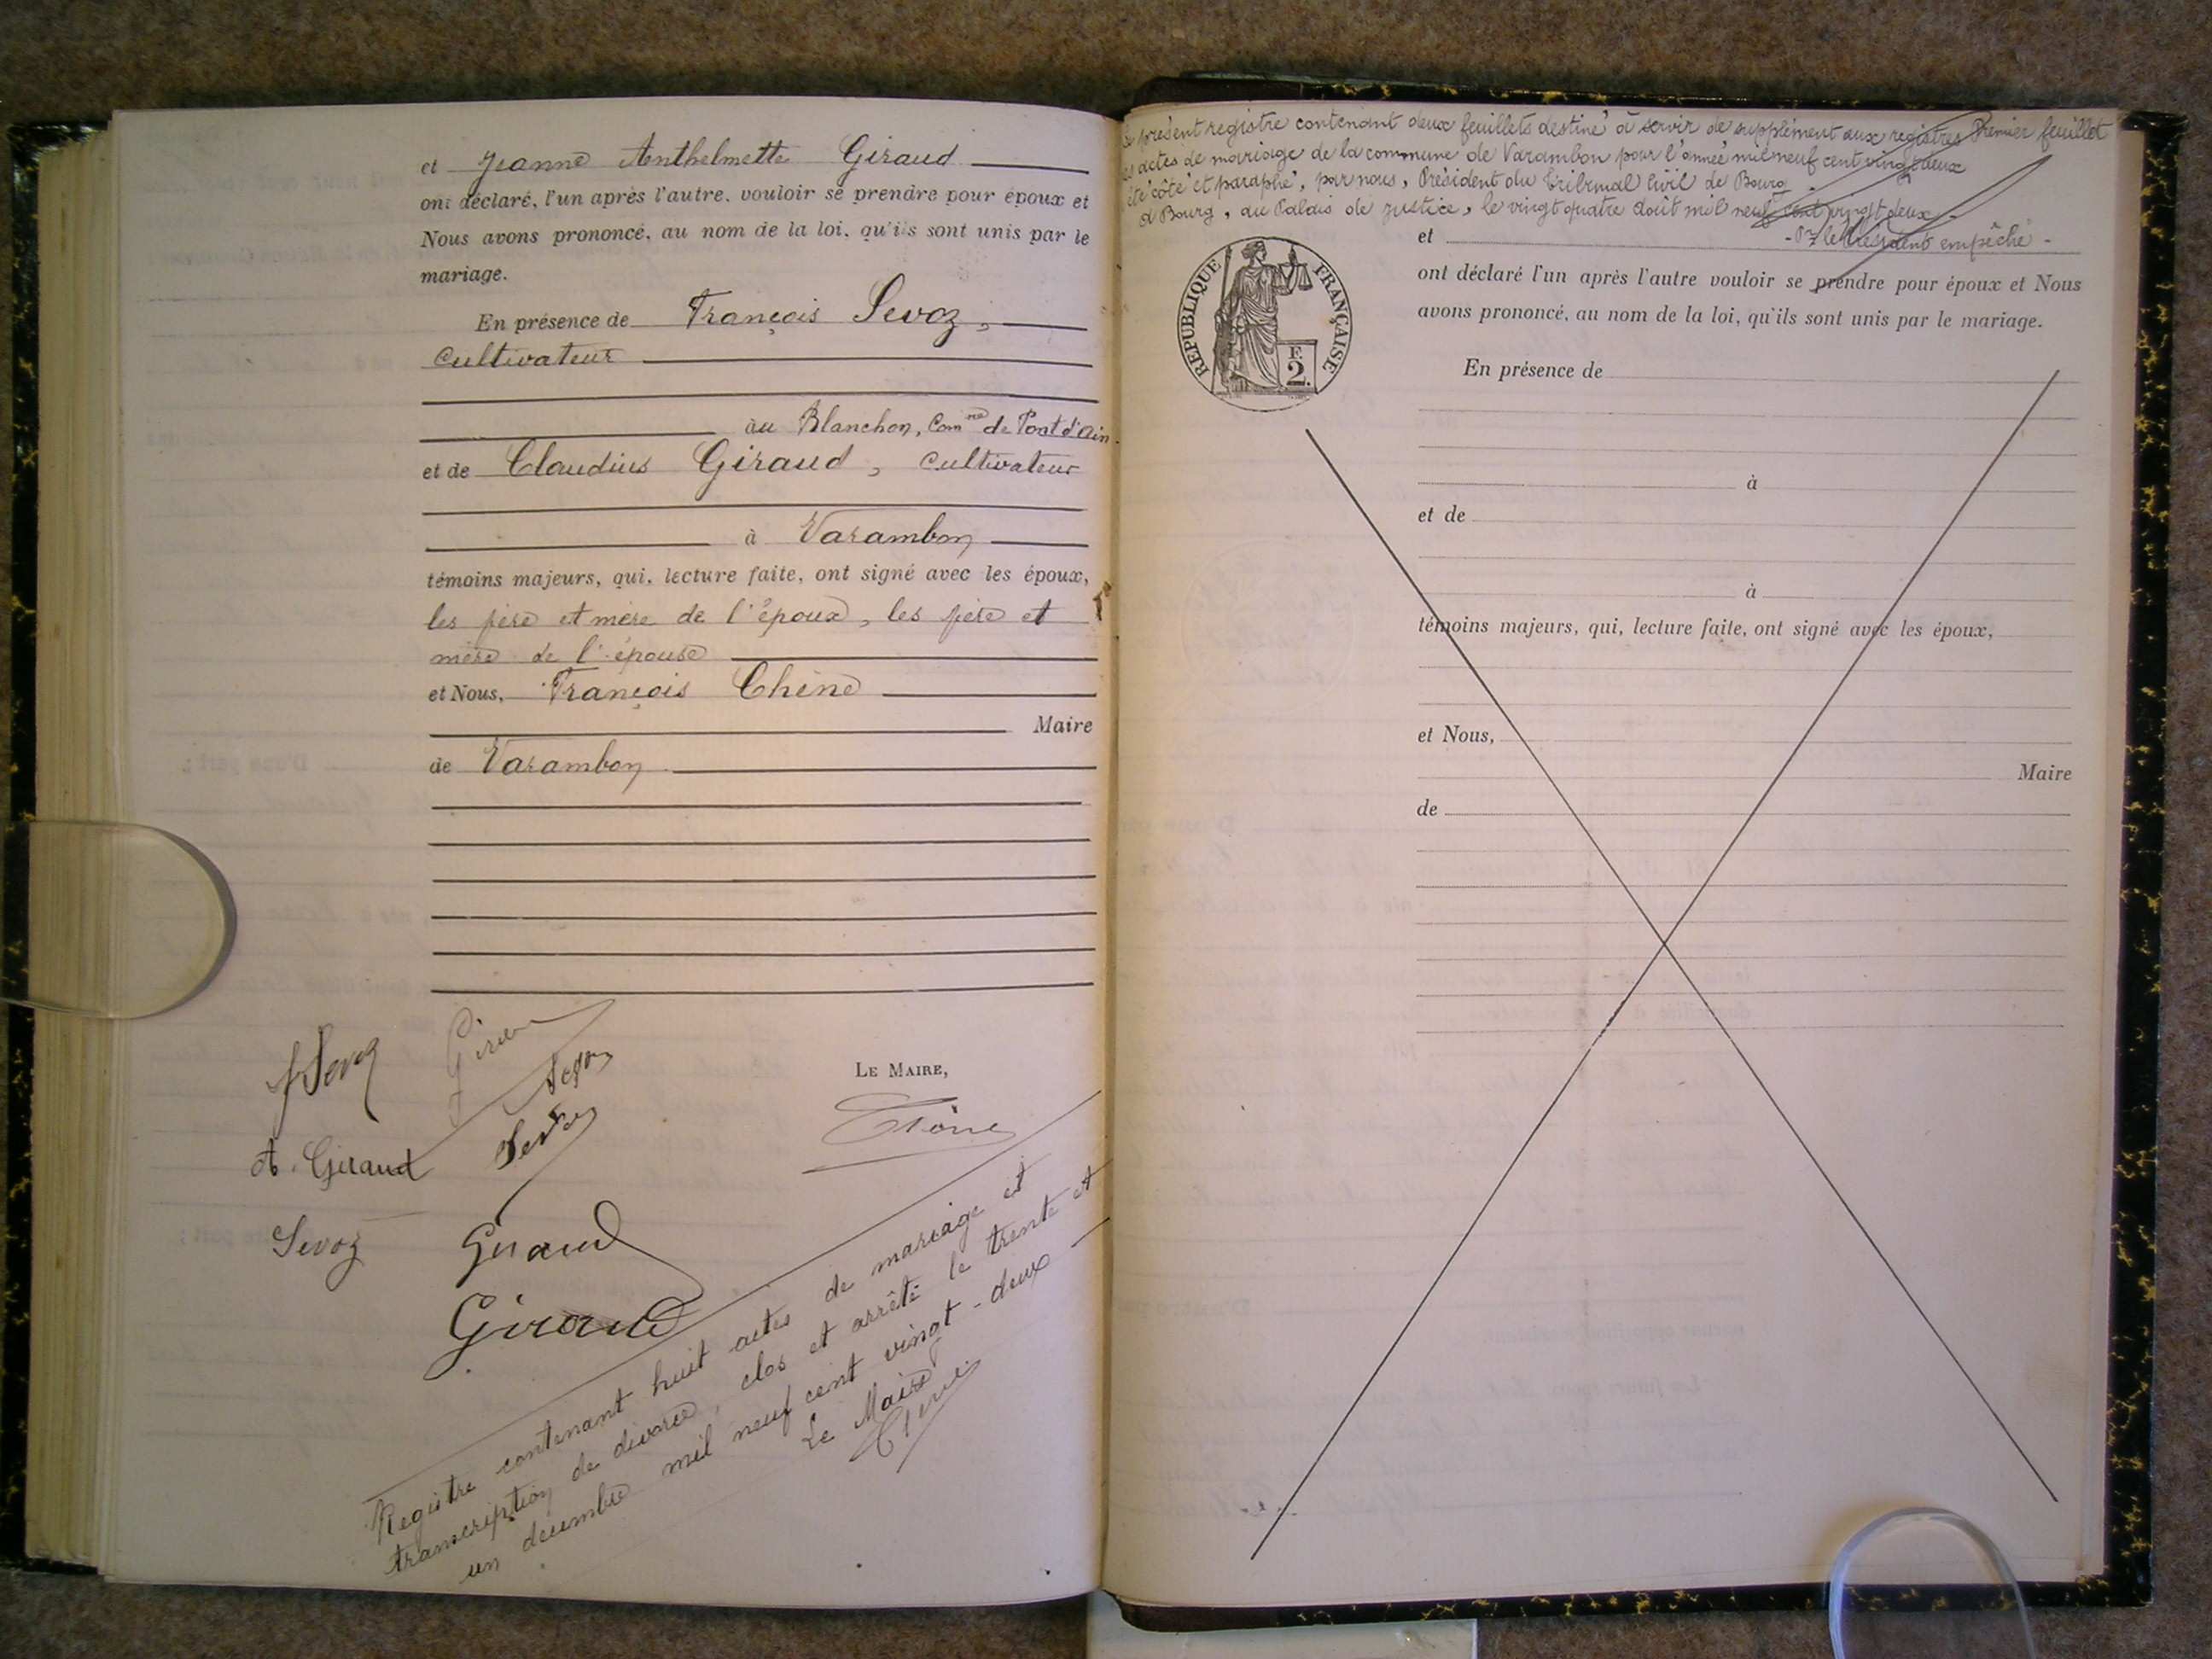 et Jeanne Anthelmette Giraud
ont déclaré, l'un après l'autre, vouloir se prendre pour époux et
Nous avons prononcé, au nom de la loi, qu'ils sont unis par le
mariage.
En présence de François Sevoz,
cultivateur
au Blanchon, Comne de Pont d'Ain.
et de Claudius Giraud, cultivateur
à Varambon
témoins majeurs, qui, lecture faite, ont signé avec les époux,
les père et mère de l'époux, les père et
mère de l'épouse
et Nous, François Chêne
Maire
de Varambon
LE MAIRE,
A. Giraud
Sevoz
Giraud
Giraud
Registre contenant huit actes de mariage et
transcription de divorce, clos et arrêté le trente et
un décembre mil neuf cent vingt-deux
Le Maire
présent registre contenant deux feuillets destiné à servir de supplément aux registres Premier feuillet
actes de mariage de la commune de Varambon pour l'année mil neuf cent vingt deux
été côté et paraphé, par nous, Président du Tribunal Civil de Bourg
Bourg, au Palais de Justice, le vingt quatre Août mil neuf cent vingt deux -
- Pr le Président empêché -
RÉPUBLIQUE FRANÇAISE
F.
2.
et
ont déclaré l'un après l'autre vouloir se prendre pour époux et Nous
avons prononcé, au nom de la loi, qu'ils sont unis par le mariage.
En présence de
à
et de
à
témoins majeurs, qui, lecture faite, ont signé avec les époux,
et Nous,
Maire
de